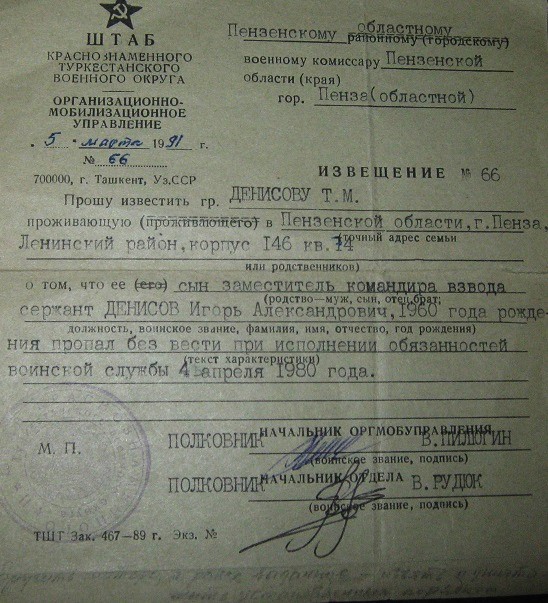 ШТАБ
КРАСНОЗНАМЕННОГО
ТУРКЕСТАНСКОГО
ВОЕННОГО ОКРУГА
ОРГАНИЗАЦИОННО-
МОБИЛИЗАЦИОННОЕ
УПРАВЛЕНИЕ
„5“ марта 1991 г.
№ 66
700000, г. Ташкент, Уз.ССР
Пензенскому областному
районному (городскому)
военному комиссару Пензенской
области (края)
гор. Пенза(областной)
ИЗВЕЩЕНИЕ № 66
Прошу известить гр. ДЕНИСОВУ Т.М.
проживающую (проживающего) в Пензенской области,г.Пенза,
Ленинский район,корпус I46 кв.14
(точный адрес семьи
или родственников)
о том, что ее (его) сын заместитель командира взвода
(родство—муж, сын, отец, брат;
сержант ДЕНИСОВ Игорь Александрович,1960 года рожде-
должность, воинское звание, фамилия, имя, отчество, год рождения)
ния пропал без вести при исполнении обязанностей
(текст характеристики)
воинской службы 4 апреля 1980 года.
М. П.
НАЧАЛЬНИК ОРГМОБУПРАВЛЕНИЯ
ПОЛКОВНИК В.ПИЛЮГИН
(воинское звание, подпись)
НАЧАЛЬНИК ОТДЕЛА
ПОЛКОВНИК В.РУДЮК
(воинское звание, подпись)
ТШГ Зак. 467—89 г. Экз. №